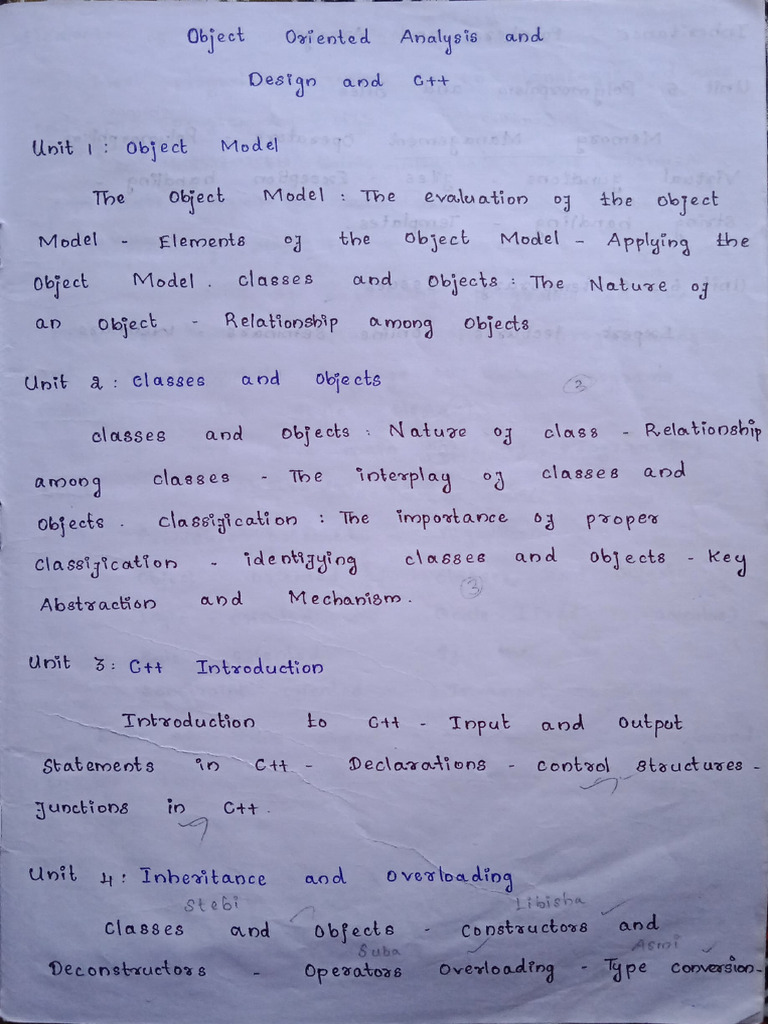 Object Oriented Analysis and
Design and C++
Unit 1: Object Model
The Object Model: The evaluation of the object
Model - Elements of the Object Model - Applying the
Object Model. Classes and Objects: The Nature of
an Object - Relationship among Objects
Unit 2: Classes and Objects
3
Classes and Objects: Nature of class - Relationship
among classes - The interplay of classes and
Objects. Classification: The importance of proper
Classification - identifying classes and Objects - Key
3
Abstraction and Mechanism.
Unit 3: C++ Introduction
Introduction to C++ - Input and Output
Statements in C++ - Declarations - control structures -
functions in C++.
Unit 4: Inheritance and Overloading
Stebi Libisha
Classes and Objects - Constructors and
Suba Asmi
Deconstructors - Operators Overloading - Type conversion -